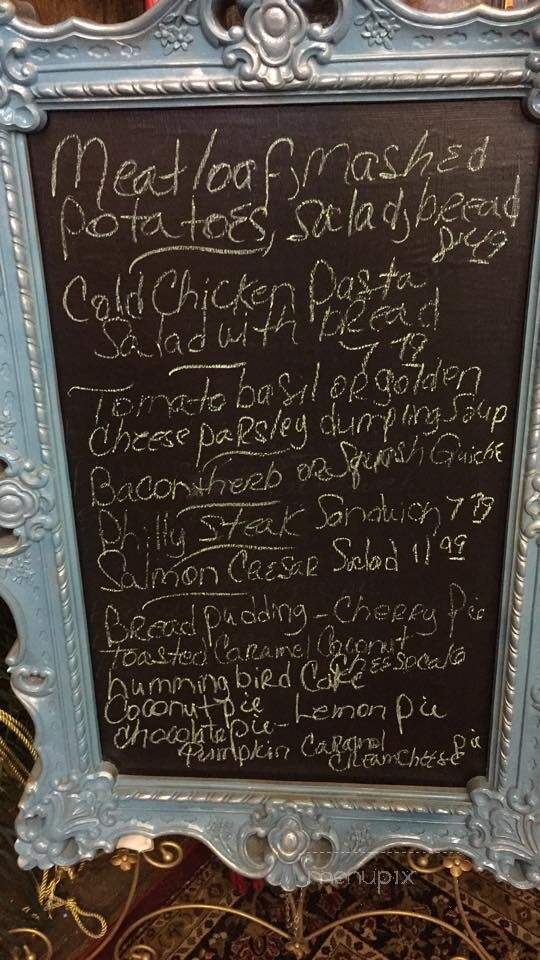 Meatloaf, mashed
potatoes, salad, bread
Cold Chicken Pasta
Salad with bread
7 99
Tomato basil or golden
Cheese parsley dumpling soup
Bacon + herb or Spinish Quiche
Philly Steak Sandwich 7 99
Salmon Caesar Salad 11 99
Bread pudding - Cherry Pie
Toasted Caramel Coconut
Cheesecake
hummingbird Cake
Coconut pie
chocolate pie - Lemon pie
Pumpkin Caramel Pie
Creamcheese
menupix